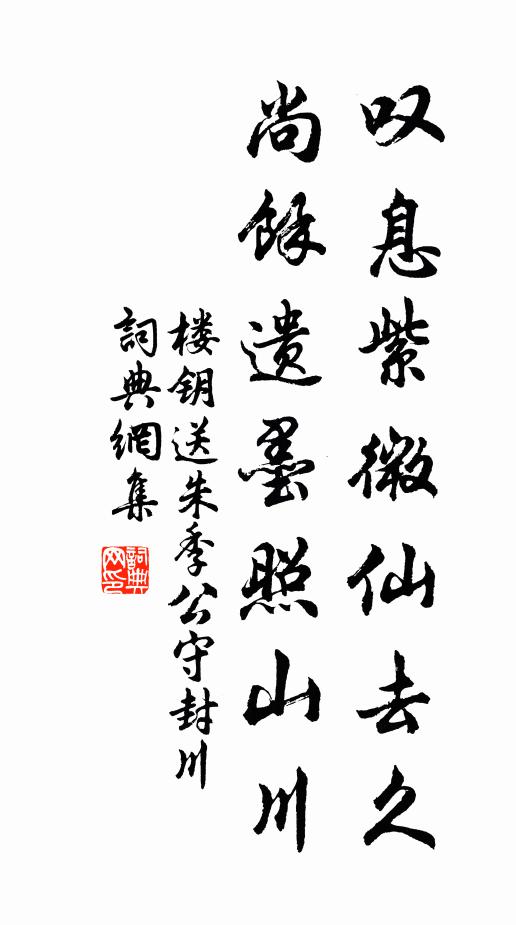 叹息紫微仙去久
尚馀遗墨照山川
楼钥送朱季公守封川
詞典網集
詞典网印